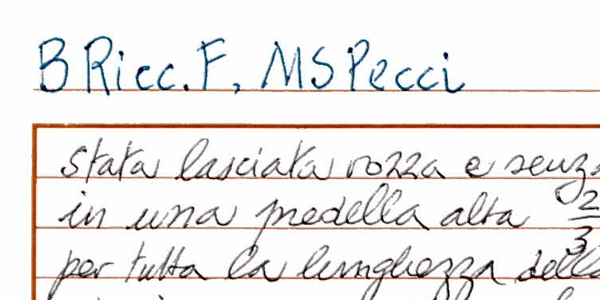 B Ricc. F, MS Pecci
stata lasciata rozza e senz
in una predella alta 2/3
per tutta la lunghezza della